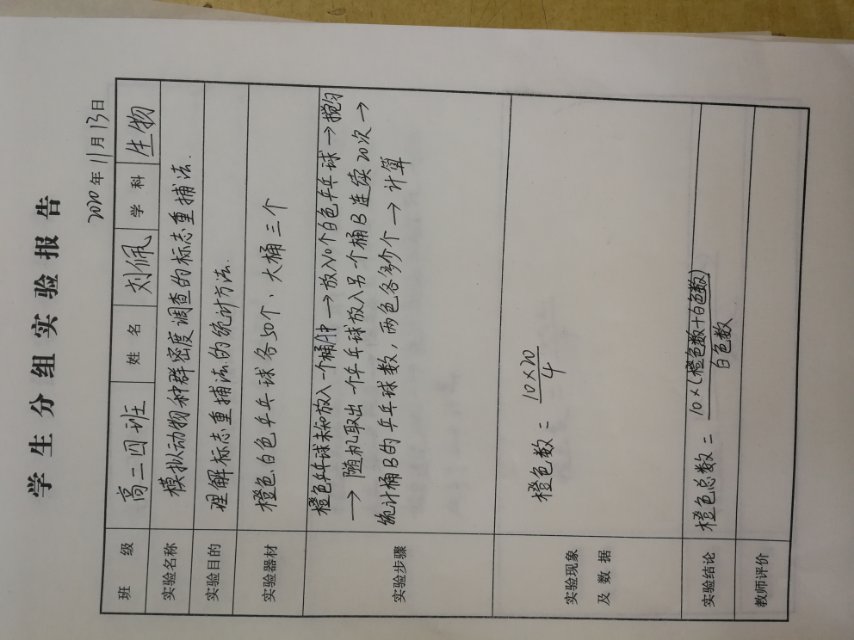 学生分组实验报告
2020年11月13日
班级 高二四班 姓名 刘佩 学科 生物
实验名称 模拟动物种群密度调查的标志重捕法.
实验目的 理解标志重捕法的统计方法.
实验器材 橙色、白色乒乓球各50个、大桶三个
实验步骤
橙色乒乓球未知放入一个桶A中 → 放入10个白色乒乓球 → 搅匀
→ 随机取出一个乒乓球放入另一个桶B连续20次 →
统计桶B的乒乓球数,两色各多少个 → 计算
实验现象及数据
橙色数 = 10×20/4
实验结论 橙色总数 = 10×(橙色数+白色数)/白色数
教师评价